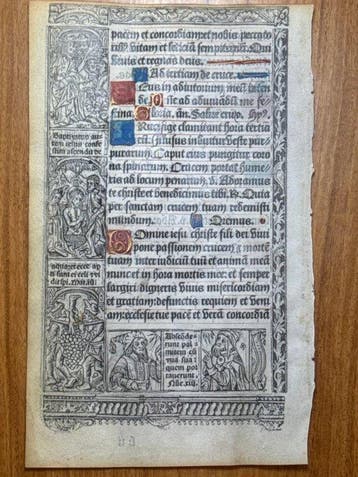 pacem et concordiam:et nobis peccato
ribus vitam et leticiam sempiternā. Qui
viuis et regnas deus.
Ad tertiam de cruce.
Deus in adiutoriū meū inten
de Dñe ad adiuuandū me fe
stina. Gloria. Añ. Salue crux. Hyꝰ.
Crucifige clamitant hora tertia
rū. Illusus induitur veste pur
purarum. Caput eius pungitur coro
na spinarum. Crucem portat hume
ris ad locum penarum. v̄. Adoramus
te christe et benedicimus tibi. R̄. Quia
per sanctam crucem tuam redemisti
mundum. Oremus.
Domine iesu christe fili dei viui
pone passionem crucem et mortē
tuam inter iudiciū tuū et animā meā
nunc et in hora mortis mee: et semper
largiri digneris viuis misericordiam
et gratiam: defunctis requiem et veni
am: ecclesie tue pacē et verā concordiā
Baptizatus au
tem iesus confe
stim ascendit de
Abscide
runt pal
mitem cū
vua sua:
quem por
tauerunt.
Nūe. xiii.